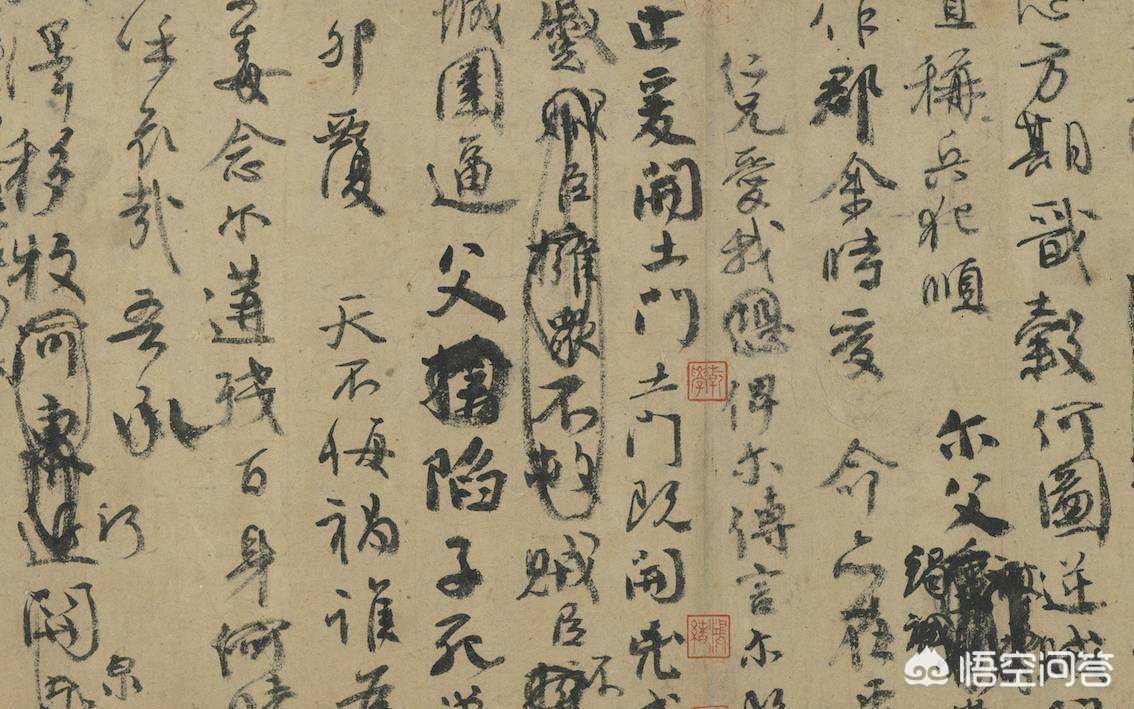 方期戩穀何圖逆賊
稱兵犯順 尔父
竭誠
作郡余時受命亦在平
仁兄愛我恐俾尔傳言尔既
止爰開土門土門既開兇威
蹙賊臣擁衆不救賊臣不
城圍逼父陷子死巢
卵覆天不悔禍誰為
毒念尔遘殘百身何贖
呼哀哉吾承
澤移牧河東近關
泉
悟空问答